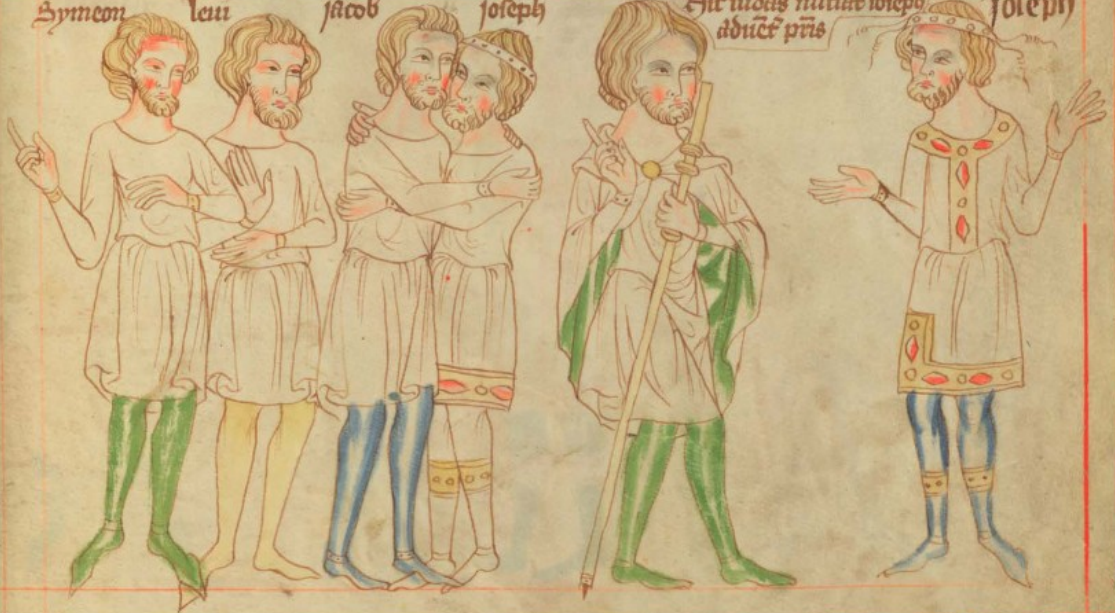 Symeon
leui
jacob
joseph
Hic iudas nūtiat ioseph
aduēt̄ pr̄is
joseph